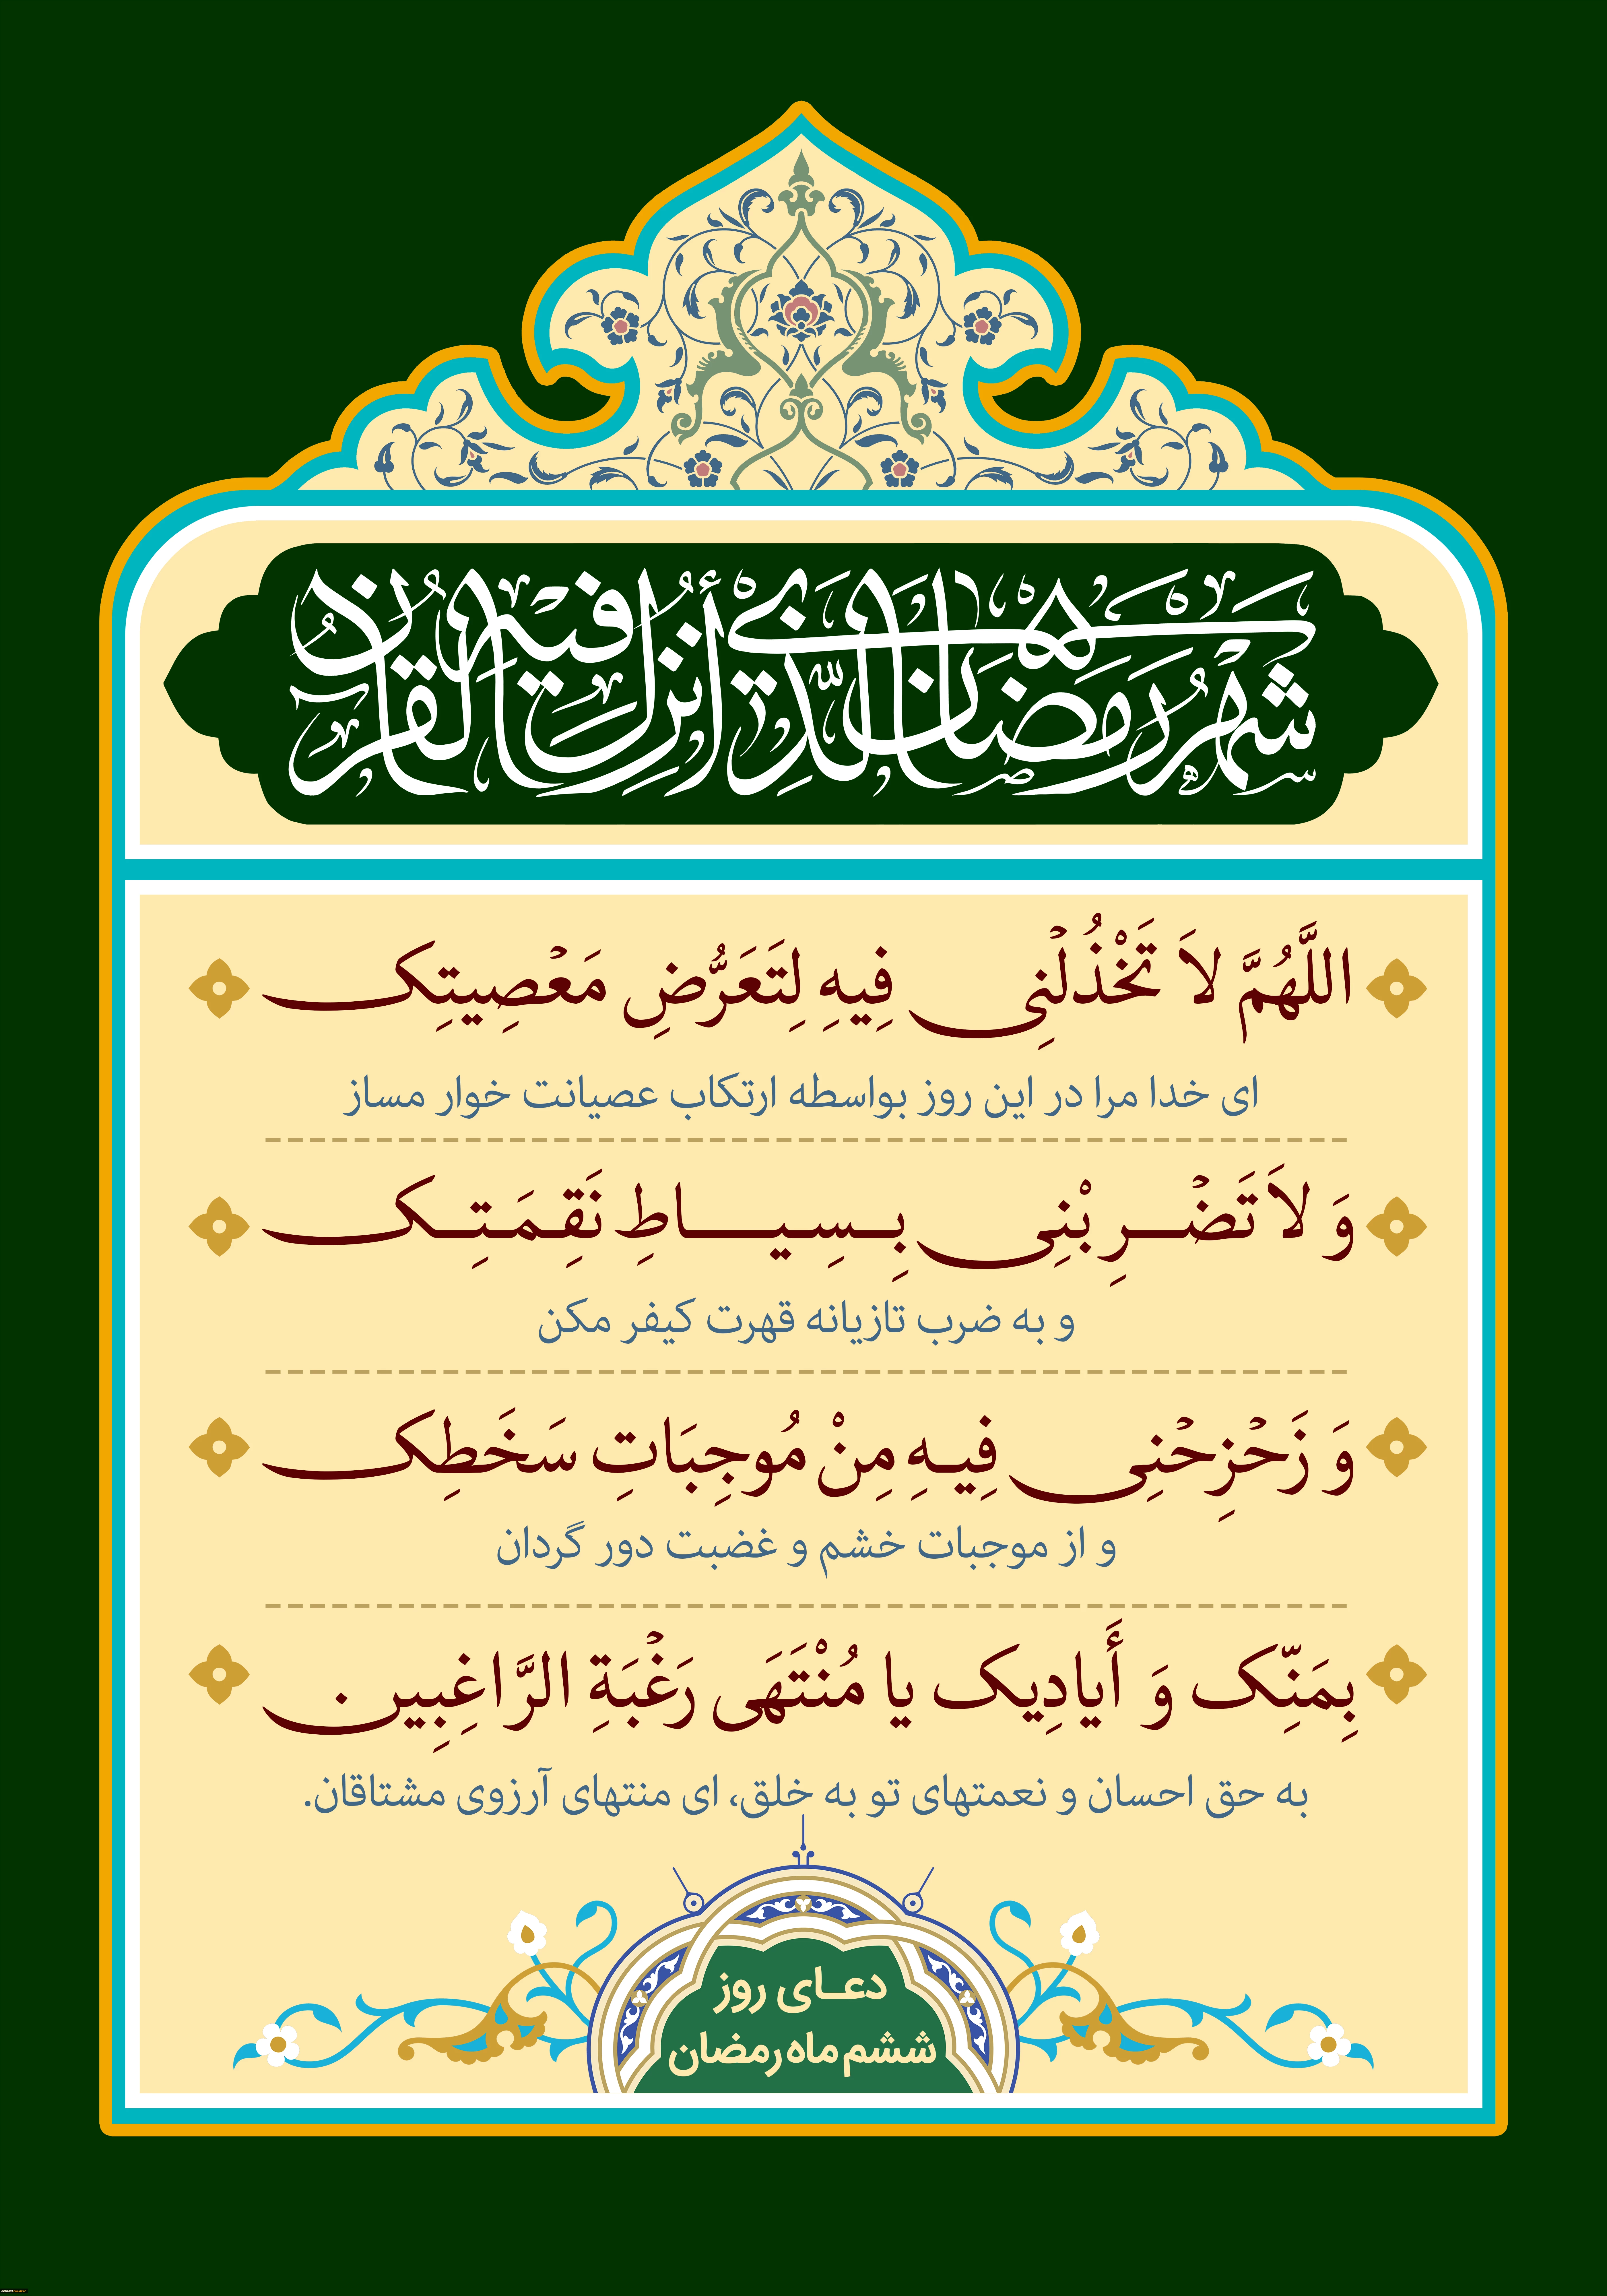 شَهْرُ رَمَضَانَ الَّذِي أُنْزِلَ فِيهِ الْقُرْآنُ
اللَّهُمَّ لاَ تَخْذُلْنِی فِیهِ لِتَعَرُّضِ مَعْصِیتِک
ای خدا مرا در این روز بواسطه ارتکاب عصیانت خوار مساز
وَ لاَ تَضْرِبْنِی بِسِیاطِ نَقِمَتِک
و به ضرب تازیانه قهرت کیفر مکن
وَ زَحْزِحْنِی فِیهِ مِنْ مُوجِبَاتِ سَخَطِک
و از موجبات خشم و غضبت دور گردان
بِمَنِّک وَ أَیادِیک یا مُنْتَهَى رَغْبَةِ الرَّاغِبِین
به حق احسان و نعمتهای تو به خلق، ای منتهای آرزوی مشتاقان.
دعای روز
ششم ماه رمضان